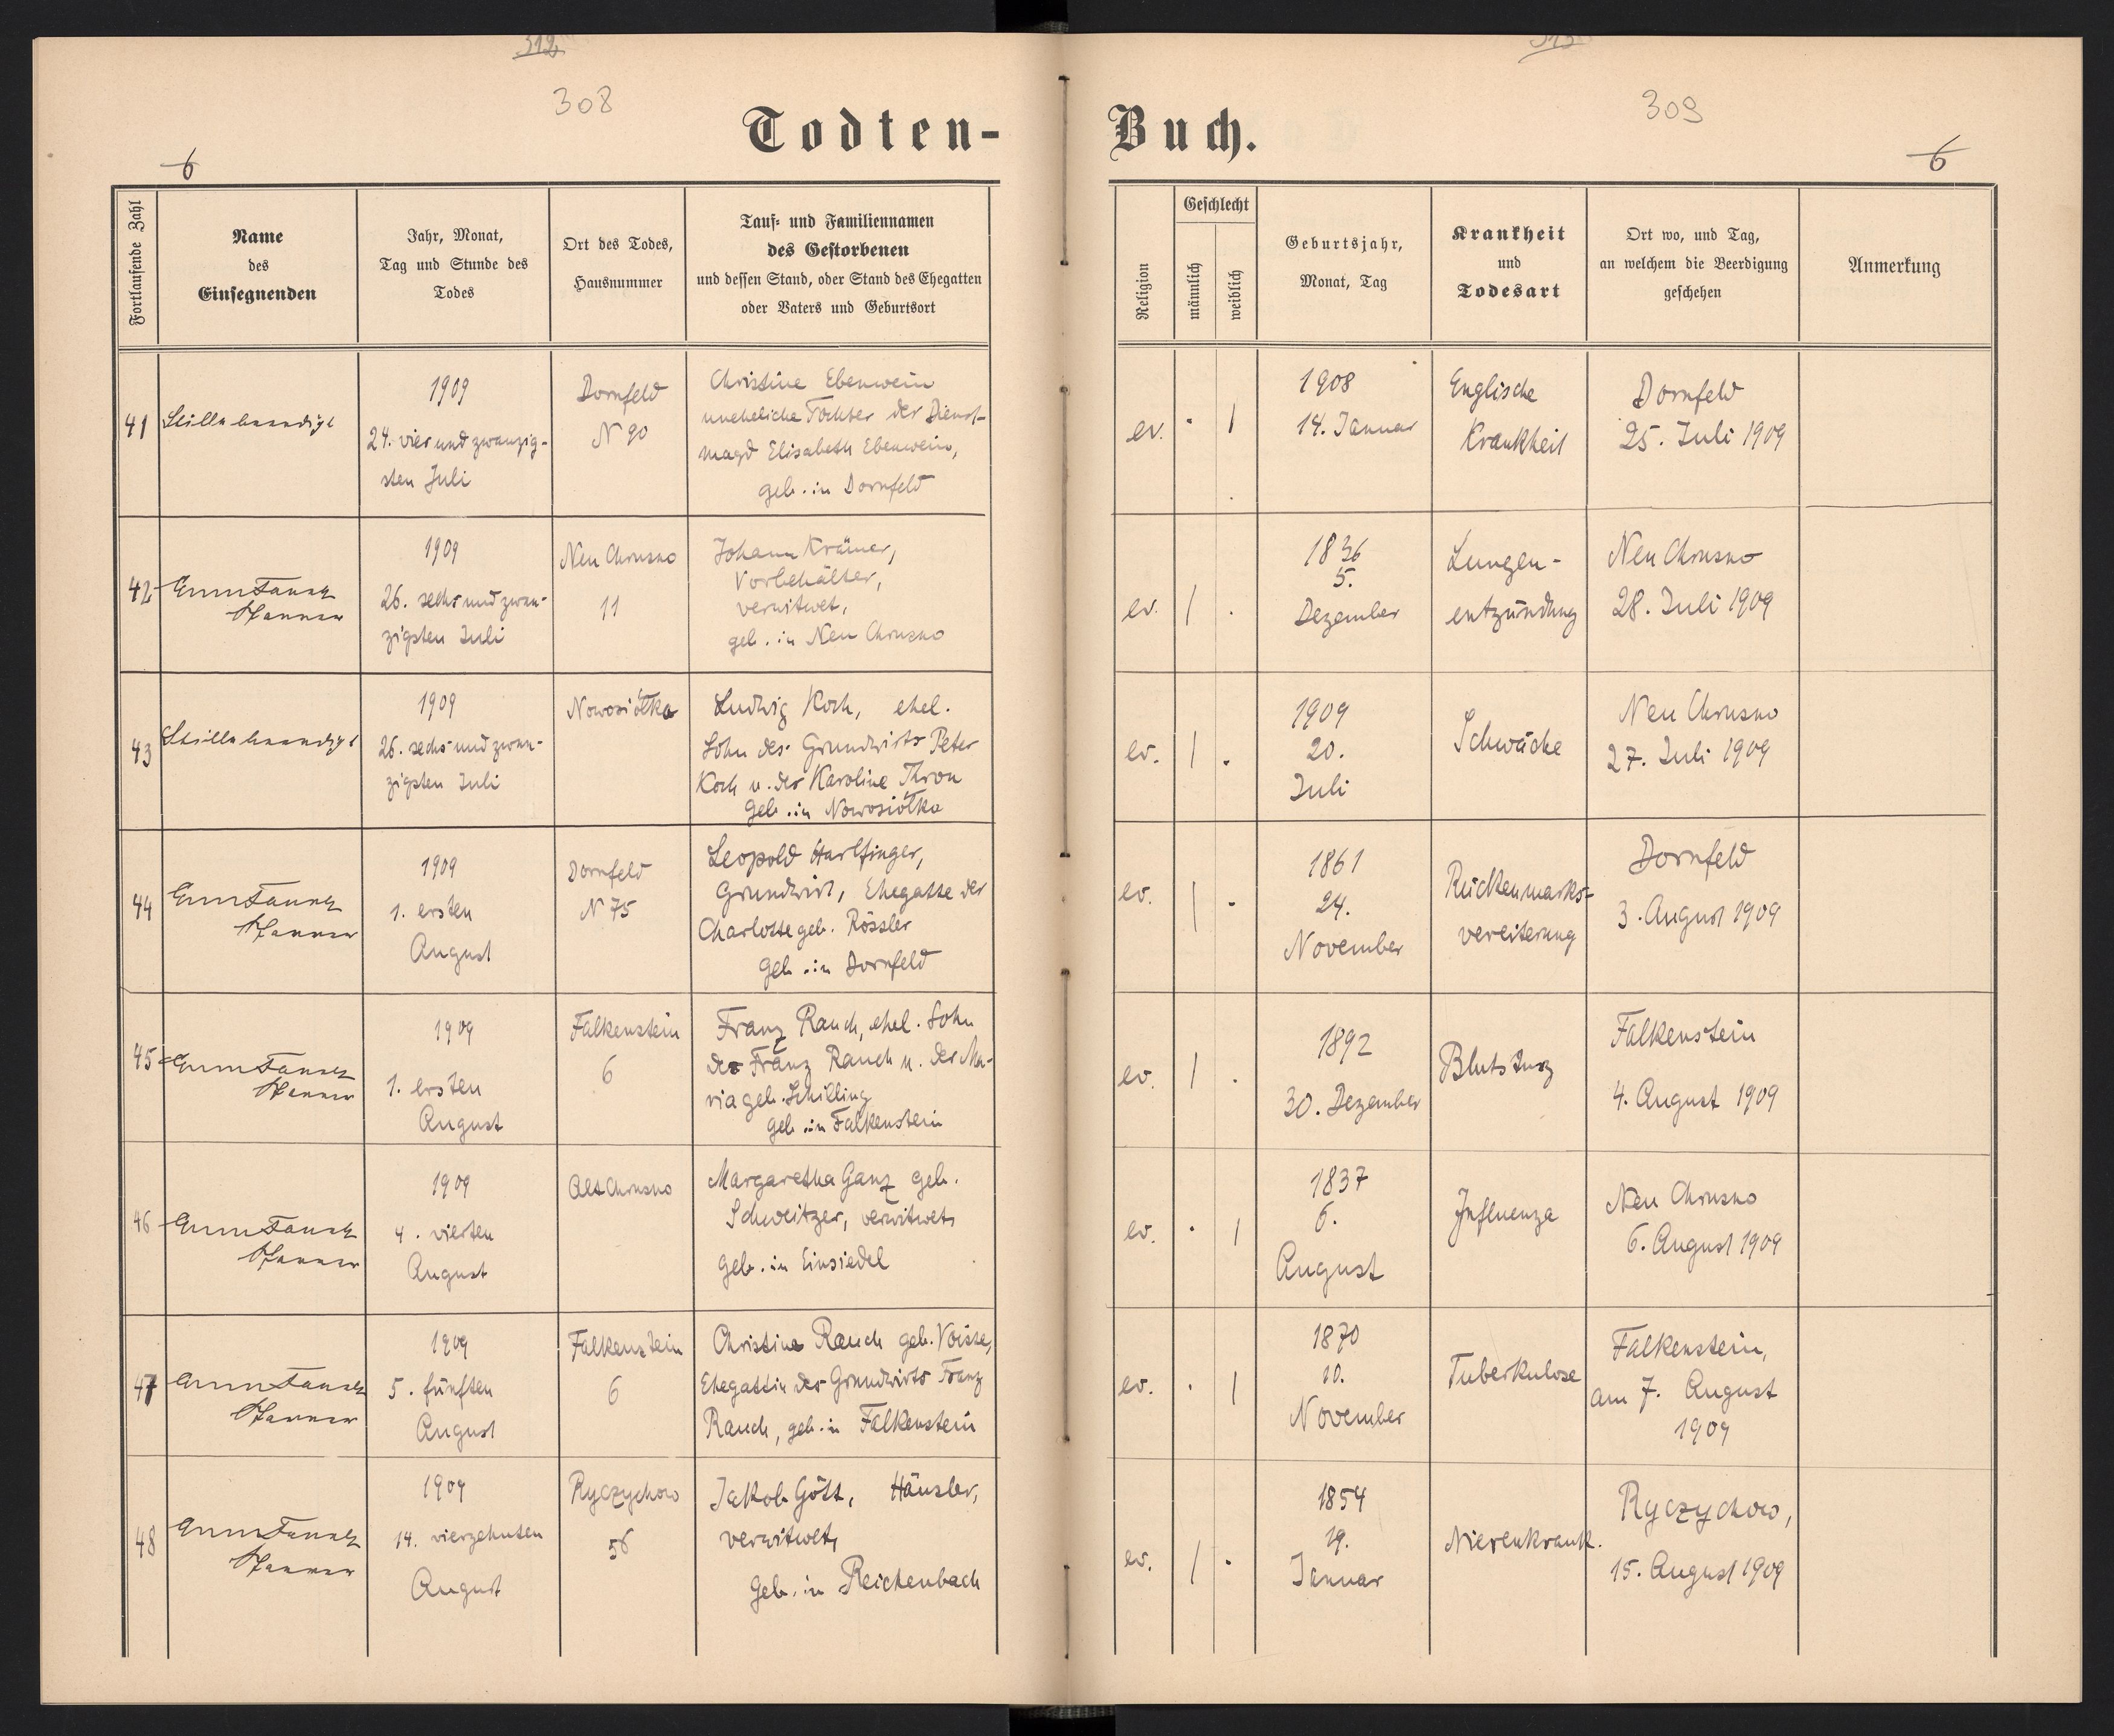 312
308
Todten-
6
Fortlaufende Zahl
Name
des
Einsegnenden
Jahr, Monat,
Tag und Stunde des
Todes
Ort des Todes,
Hausnummer
Tauf- und Familiennamen
des Gestorbenen
und dessen Stand, oder Stand des Ehegatten
oder Vaters und Geburtsort
41
Stille beerdigt
1909
24. vier und zwanzig-
sten Juli
Dornfeld
N 90
Christine Ebenwein
uneheliche Tochter der Dienst-
magd Elisabeth Ebenwein,
geb. in Dornfeld
42
Pfarrer
1909
26. sechs und zwan-
zigsten Juli
Neu Chrusno
11
Johann Krämer,
Vorbehälter,
verwitwet,
geb. in Neu Chrusno
43
Stille beerdigt
1909
26. sechs und zwan-
zigsten Juli
Nowosiółka
Ludwig Koch, ehel.
Sohn des Grundwirts Peter
Koch u. der Karoline Thron
geb. in Nowosiółka
44
Pfarrer
1909
1. ersten
August
Dornfeld
N 75
Leopold Harlfinger,
Grundwirt, Ehegatte der
Charlotte geb. Rössler
geb. in Dornfeld
45
Pfarrer
1909
1. ersten
August
Falkenstein
6
Franz Rauch, ehel. Sohn
des Franz Rauch u. der Ma-
ria geb. Schilling
geb. in Falkenstein
46
Pfarrer
1909
4. vierten
August
Alt Chrusno
Margaretha Ganz geb.
Schweitzer, verwitwet
geb. in Einsiedel
47
Pfarrer
1909
5. fünften
August
Falkenstein
6
Christine Rauch geb.
Ehegattin des Grundwirts Franz
Rauch, geb. in Falkenstein
48
Pfarrer
1909
14. vierzehnten
August
Ryczychow
56
Jakob Gött, Häusler,
verwitwet,
geb. in Reichenbach
313
309
Buch.
6
Religion
Geschlecht
männlich
weiblich
Geburtsjahr,
Monat, Tag
Krankheit
und
Todesart
Ort wo, und Tag,
an welchem die Beerdigung
geschehen
Anmerkung
ev.
1908
14. Januar
Englische
Krankheit
Dornfeld
25. Juli 1909
ev.
1836
5.
Dezember
Lungen-
entzündung
Neu Chrusno
28. Juli 1909
ev.
1909
20.
Juli
Schwäche
Neu Chrusno
27. Juli 1909
ev.
1861
24.
November
Rückenmarks-
vereiterung
Dornfeld
3. August 1909
ev.
1892
30. Dezember
Blutsturz
Falkenstein
4. August 1909
ev.
1837
6.
August
Influenza
Neu Chrusno
6. August 1909
ev.
1870
10.
November
Tuberkulose
Falkenstein,
am 7. August
1909
ev.
1854
19.
Januar
Nierenkrank.
Ryczychow,
15. August 1909